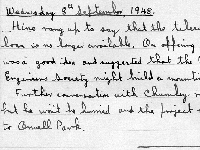 Wednesday 8th September, 1948.
Hino rang up to say that the telesc
loan is no longer available. On offering
was a good idea and suggested that the
Engineers Society might build a mountin
Further conversation with Chumley,
but he wait to buried and the project
to Orwell Park.